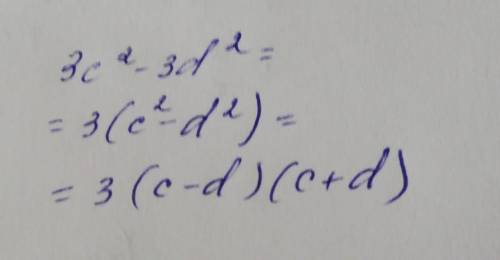 3c² - 3d² =
= 3(c² - d²) =
= 3(c-d)(c+d)